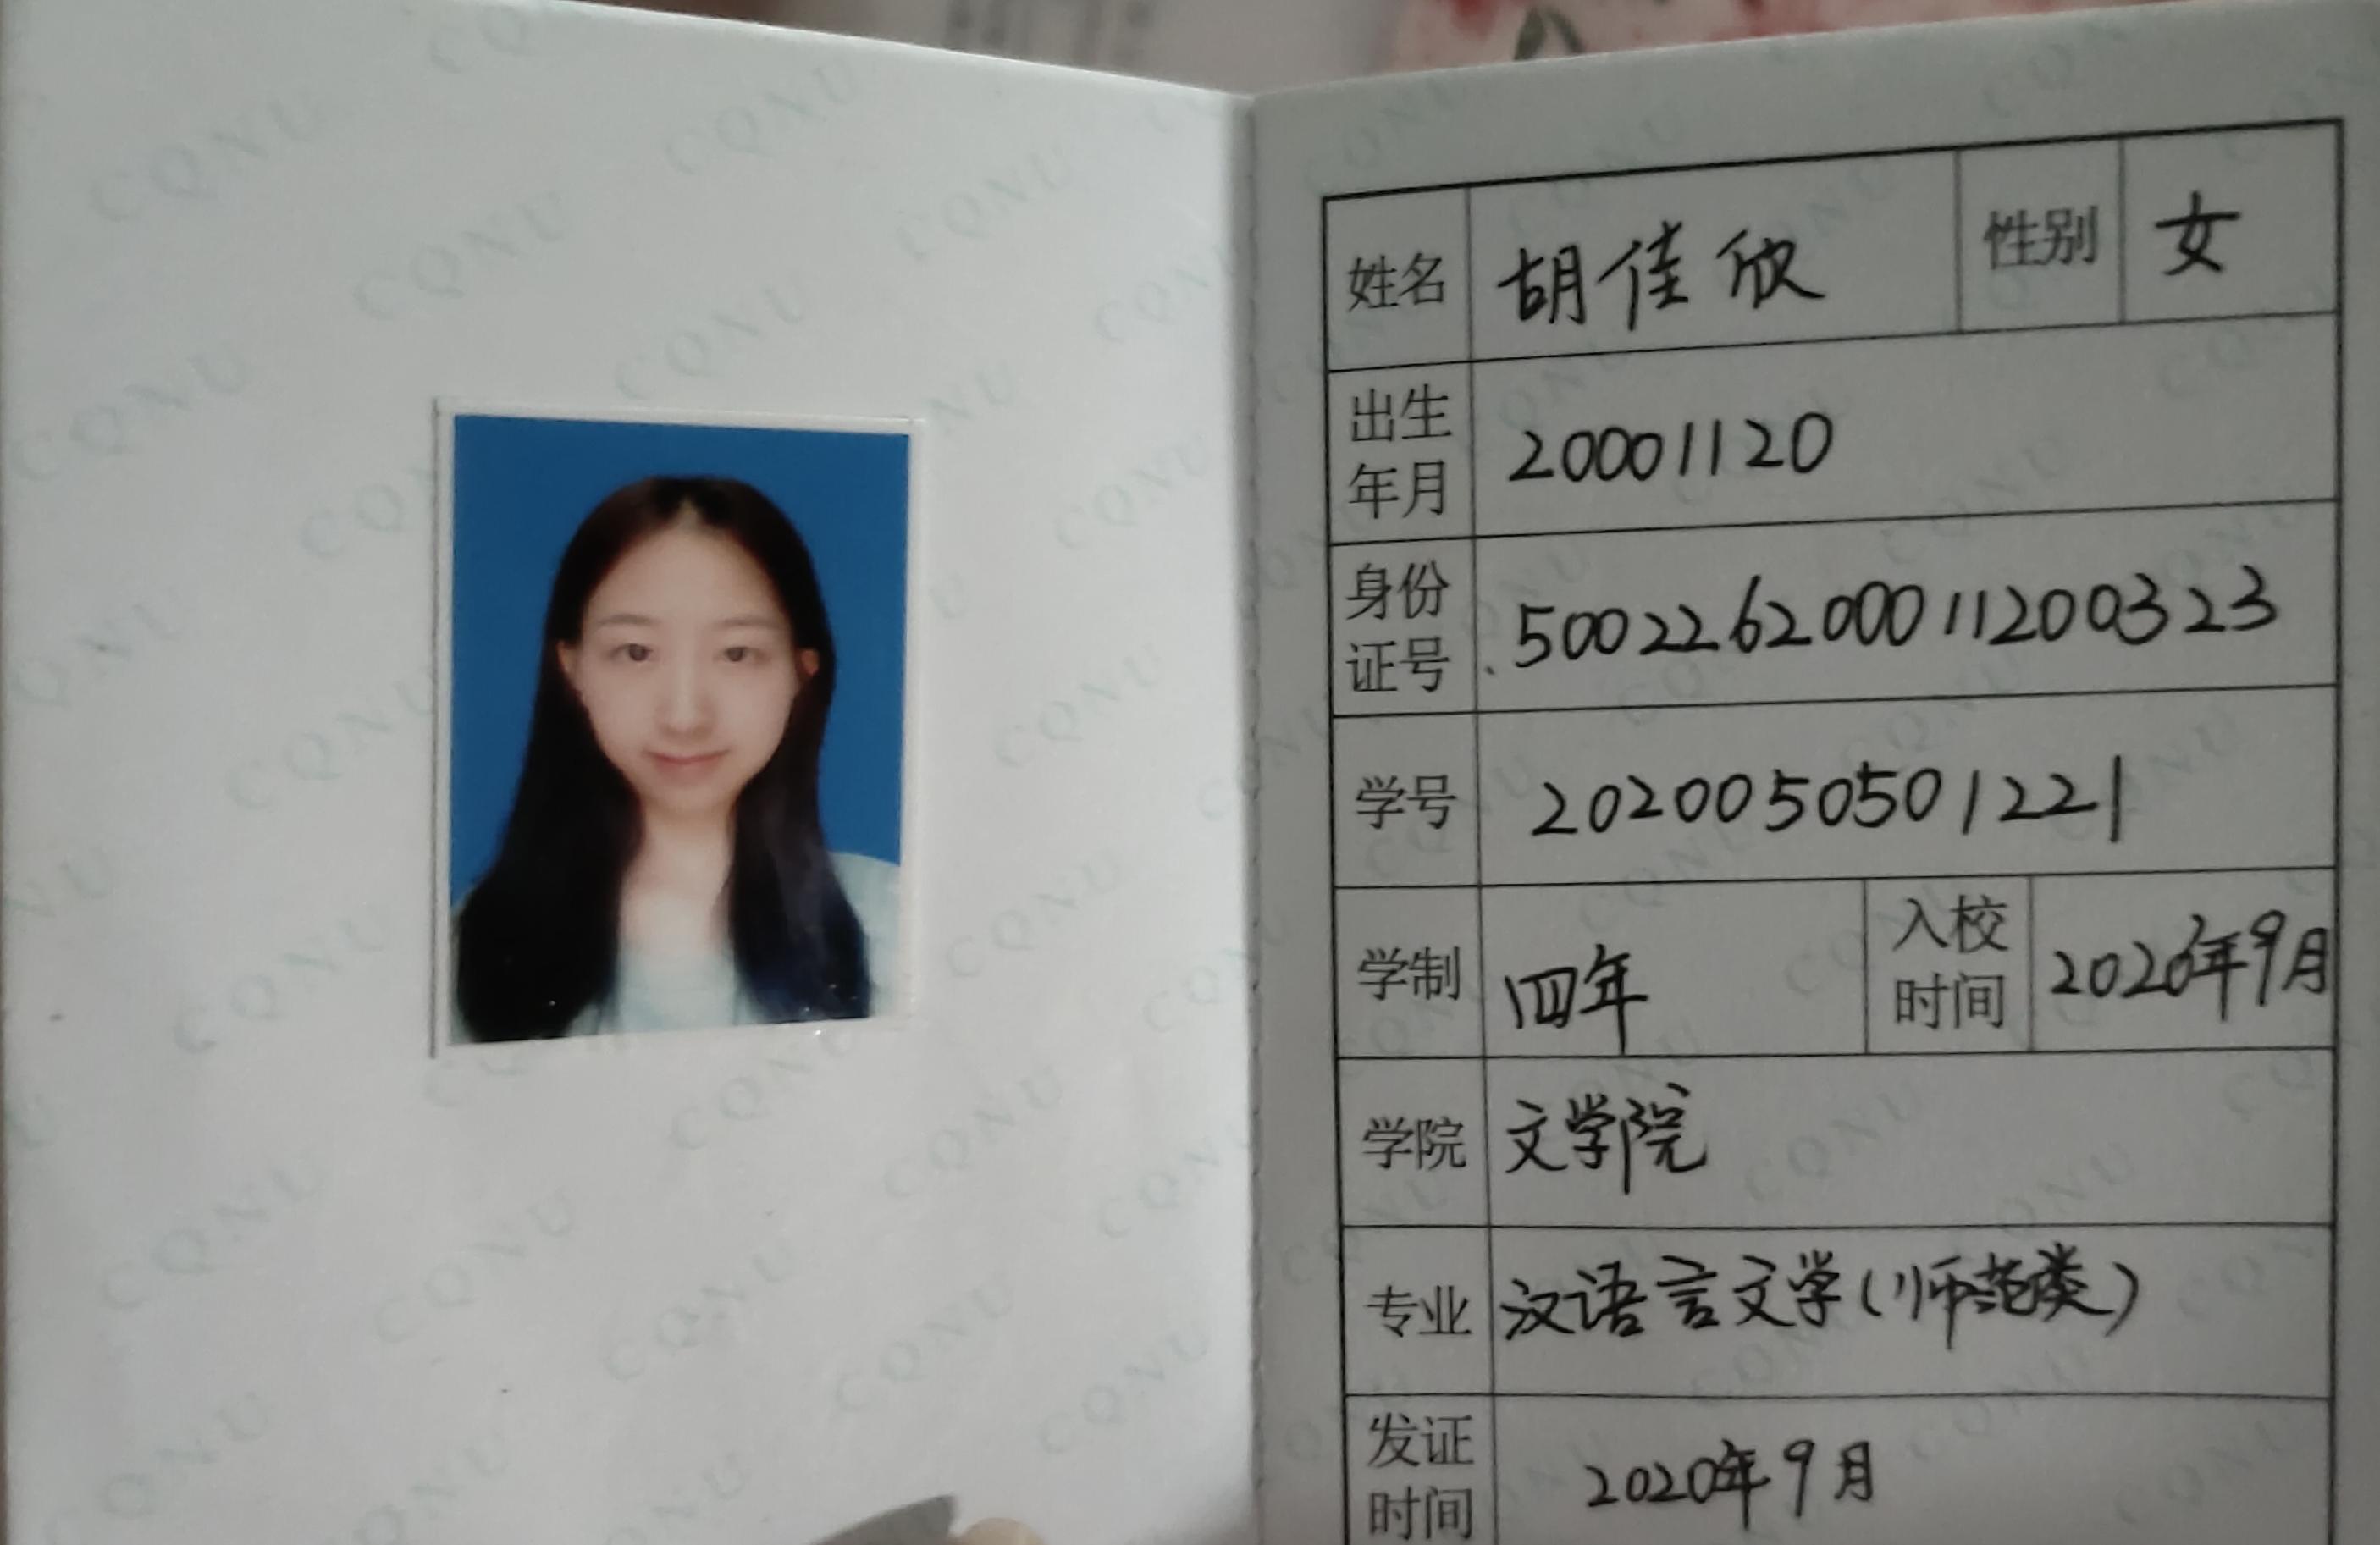 姓名 胡佳欣 性别 女
出生年月 20001120
身份证号 500226200011200323
学号 2020050501221
学制 四年 入校时间 2020年9月
学院 文学院
专业 汉语言文学(师范类)
发证时间 2020年9月
CQNU